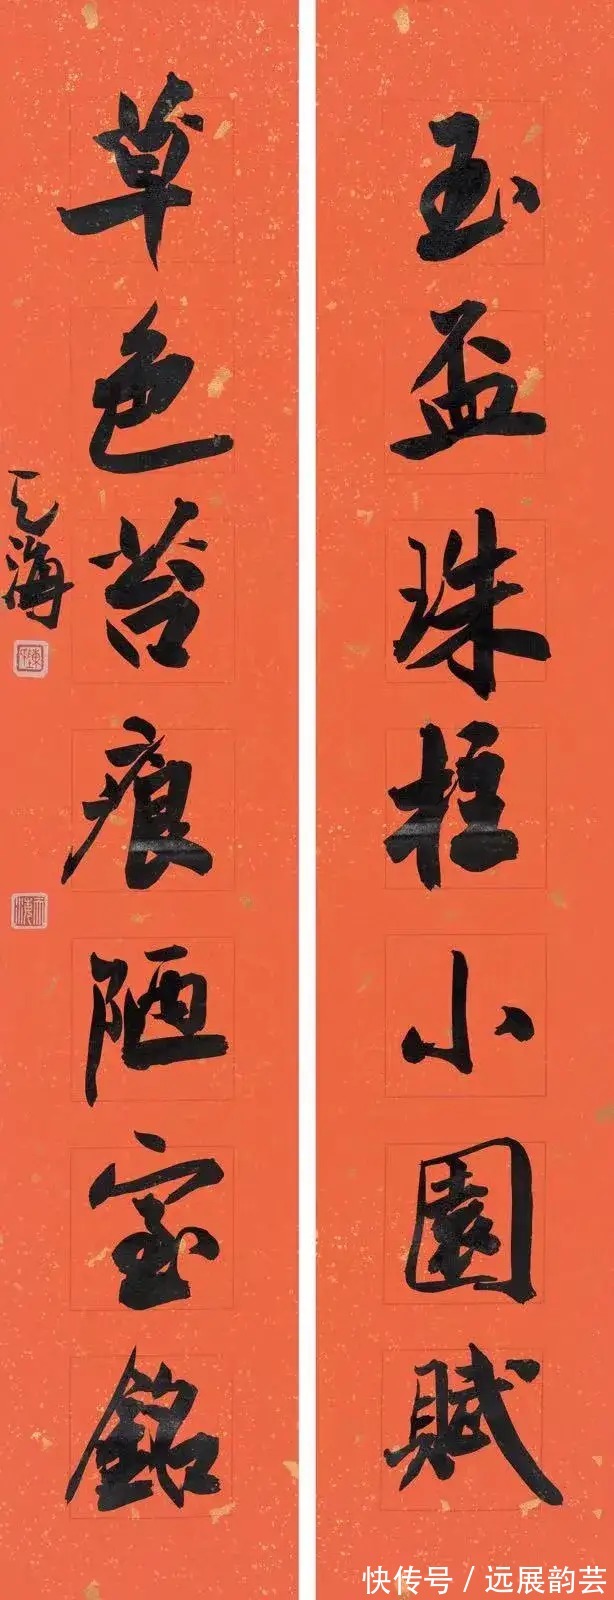 玉盃珠柱小園賦
草色苔痕陋室銘
海
快传号 / 远展韵芸